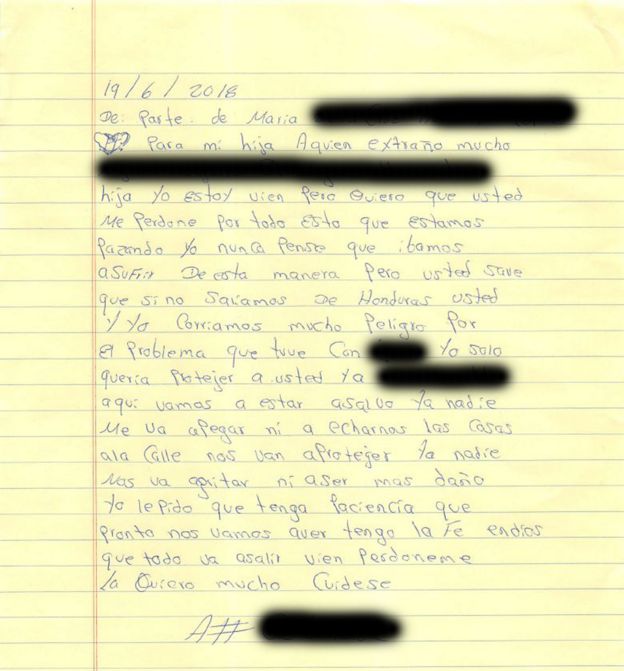 19/6/2018
De: Parte: de Maria
Para mi hija Aquien extraño mucho
hija Yo estoy vien pero Quiero que usted
Me Perdone por todo Esto que estamos
Pazando Yo nunca Pense que ibamos
asufrir De esta manera Pero usted save
que si no Saliamos De Honduras usted
Y Yo Corriamos mucho Peligro Por
El Problema que tuve Con Yo solo
queria Protejer a usted Ya
aqui vamos a estar asalvo Ya nadie
Me va apegar ni a echarnos las Cosas
ala Calle nos van aProtejer Ya nadie
Nos va agritar ni aser mas daño
Yo le Pido que tenga Paciencia que
Pronto nos vamos aver tengo la Fe endios
que todo va asalir vien Perdoneme
La Quiero mucho Cuidese
A#